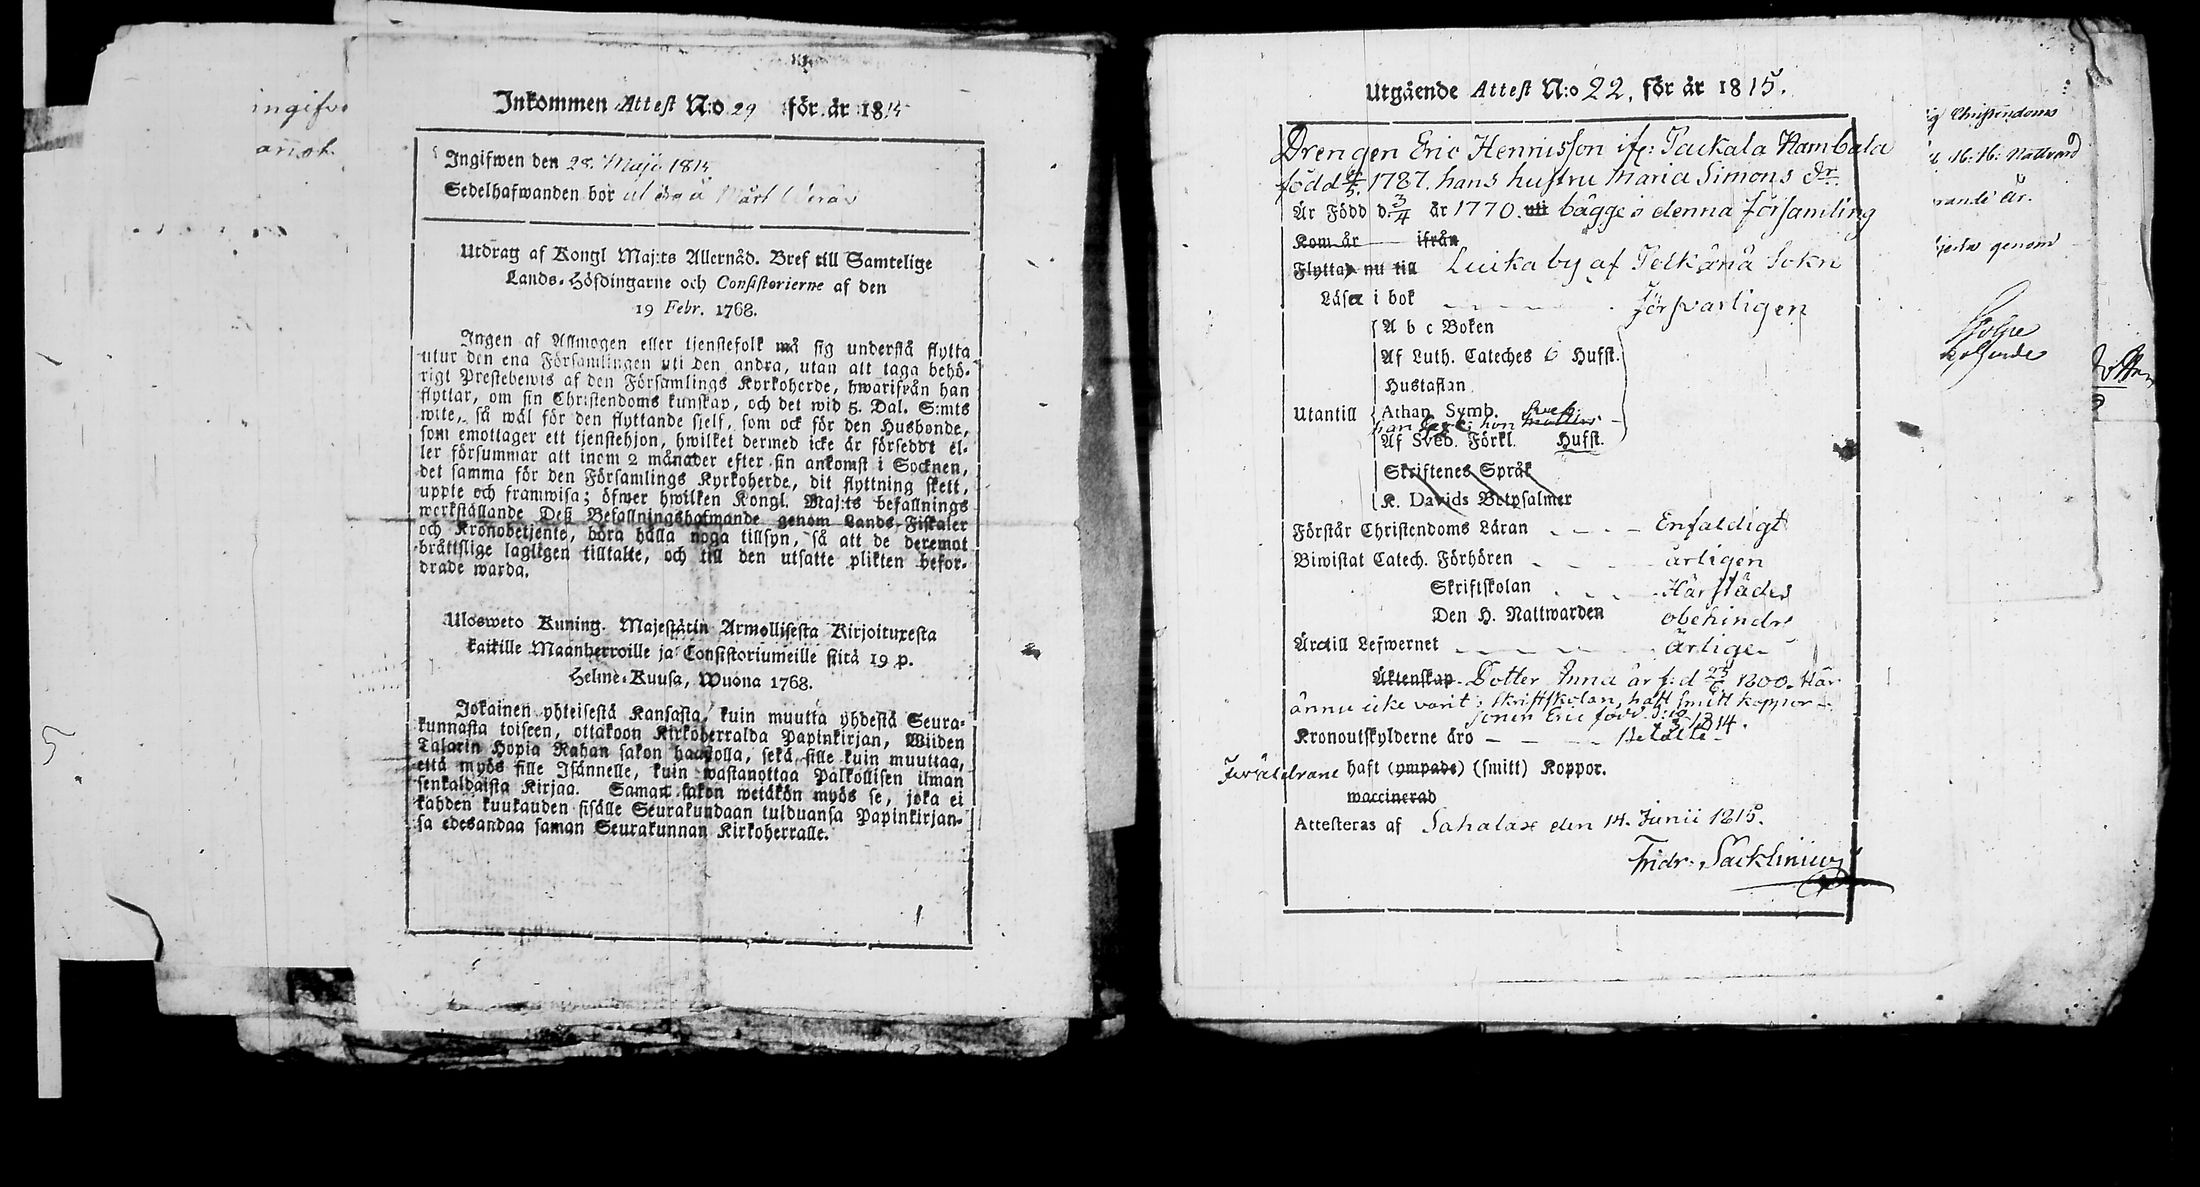 Inkommen Attest N:o 29 för år 1815
Ingifwen den 28. Maji 1815
Sedelhafwanden bor
Utdrag af Kongl Maj:ts Allernåd. Bref till Samtelige
Lands-Höfdingarne och Consistorierne af den
19 Febr. 1768.
Ingen af Allmogen eller tjenstefolk må sig understå flytta
utur den ena Församlingen uti den andra, utan att taga behö-
rigt Prestebewis af den Församlings Kyrkoherde, hwarifrån han
flyttar, om sin Christendoms kunskap, och det wid 5. Dal. S:mts
wite, så wäl för den flyttande sjelf, som ock för den Husbonde,
som emottager ett tjenstehjon, hwilket dermed icke är försedt el-
ler försummar att inom 2 månader efter sin ankomst i Socknen,
det samma för den Församlings Kyrkoherde, dit flyttning skett,
uppte och framwisa; öfwer hwilken Kongl. Maj:ts befallnings
werkställande Deß Befallningshafwande genom Lands-Fiskaler
och Kronobetjente, böra hålla noga tillsyn, så att de deremot
bråttslige lagligen tilltalte, och till den utsatte plikten befor-
drade warda.
Ulosweto Kuning. Majestätin Armollisesta Kirjoituxesta
kaikille Maanherroille ja Consistoriumeille siitä 19 p.
Helme-Kuusa, Wuona 1768.
Jokainen yhteisestä Kansasta, kuin muutta yhdestä Seura-
kunnasta toiseen, ottakoon Kirkoherralda Papinkirjan, Wiiden
Talarin Hopia Rahan sakon haastolla, sekä sille kuin muuttaa,
että myös sille Isännelle, kuin wastanottaa Palkollisen ilman
senkaldaista Kirjaa. Saman sakon wetäkön myös se, joka ei
kahden kuukauden sisälle Seurakundaan tulduansa Papinkirjan-
sa edesandaa saman Seurakunnan Kirkoherralle.
Utgående Attest N:o 22. för år 1815.
Drengen Eric Hennisson ifr: Packala Hambala
född 1787. hans hustru Maria Simons dr.
Är Född d. 3/4 år 1770. uti bägge i denna församling
Kom år ifrån
Flyttar nu till Luika by af Pelkänä Sokn
Läser i bok Försvarligen
A b c Boken
Af Luth. Cateches 6 Hufst.
Hustaflan
Utantill Athan Symb.
Af Sveb. Förkl. Hufst.
Skriftenes Språk
K. Davids Botpsalmer
Förstår Christendoms Läran Enfaldigt
Biwistat Catech. Förhören årligen
Skriftskolan Härstädes
Den H. Nattwarden obehindr
Är till Lefwernet ärlige
Äktenskap Dotter Anna är f: d 1800. Här
ännu icke varit i skriftskolan, haft smitt koppor
Sonen Eric född 1814.
Kronoutskylderne äro Betalte
Föräldrarne haft (ympade) (smitt) Koppor.
waccinerad
Attesteras af Sahalax den 14. Junii 1815.
Fridr. Sacklinius
Christendoms
H: H: Nattvard
är.
genom